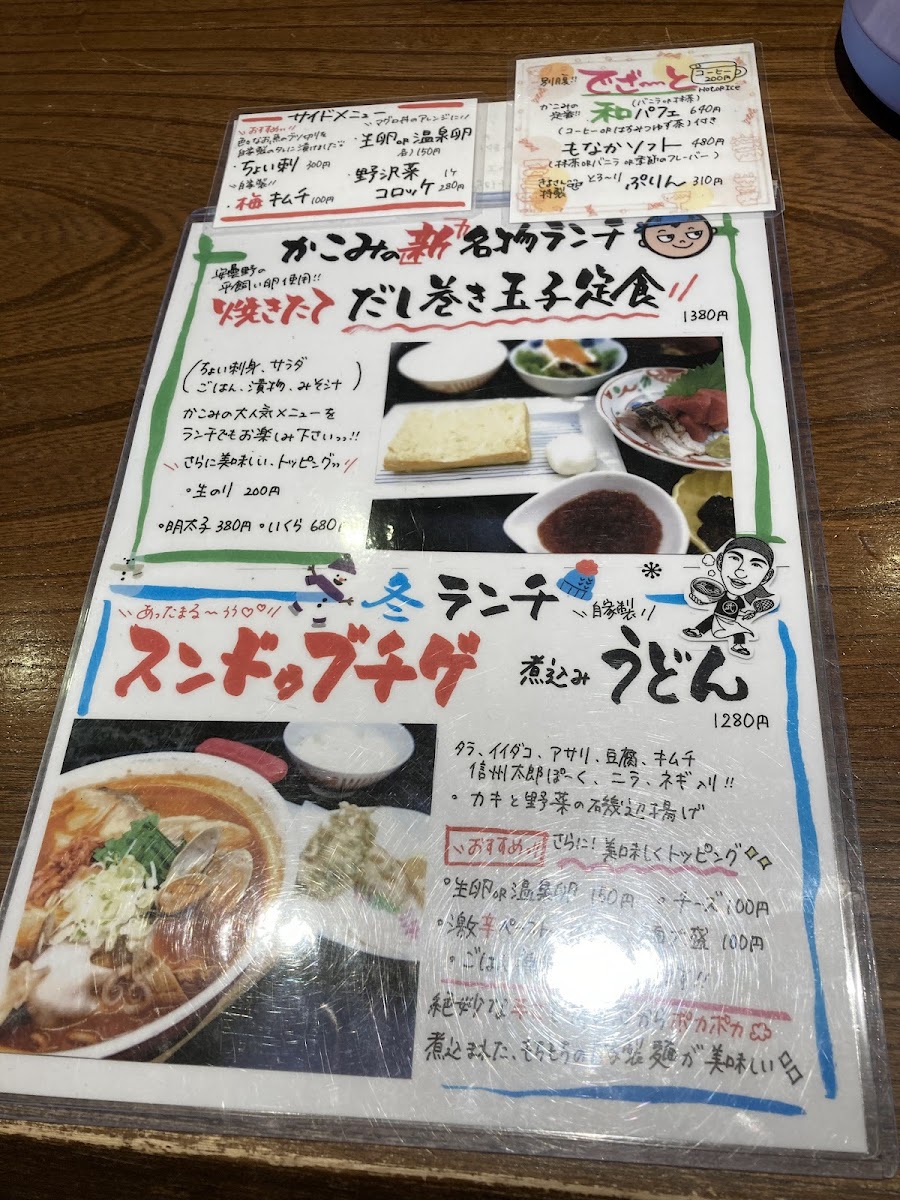 サイドメニュー
おすすめ
色々なお魚のブツ切りを
自家製のタレに漬けました
・ちょい刺 300円
自家製!!
・梅キムチ 100円
(マグロ丼のアレンジに!!)
・生卵or温泉卵
各)150円
・野沢菜 1ケ
コロッケ 280円
別腹!! でざ〜と
コーヒー
200円
HotorIce
かこみの
定番!!
(バニラor抹茶)
和パフェ 640円
(コーヒーorはちみつゆず茶)付き
もなかソフト 480円
(抹茶orバニラor季節のフレーバー)
特製 とろ〜り ぷりん 310円
かこみの新名物ランチ
安曇野の
平飼い卵使用!!
焼きたて だし巻き玉子定食!!
1380円
(ちょい刺身、サラダ
ごはん、漬物、みそ汁)
かこみの大人気メニューを
ランチでもお楽しみ下さいっ!!
さらに美味しい、トッピング
・生のり 200円
・明太子 380円 ・いくら 680円
冬 ランチ
あったまる〜
自家製
スンドゥブチゲ 煮込み うどん
1280円
タラ、イイダコ、アサリ、豆腐、キムチ
信州太郎ぽーく、ニラ、ネギ入り!!
・カキと野菜の磯辺揚げ
おすすめ さらに!美味しくトッピング
・生卵or温泉卵 150円 ・チーズ 100円
・激辛ペースト 盛 100円
・ごはん
からポカポカ
煮込まれた、もちもちの 製麺が美味しい